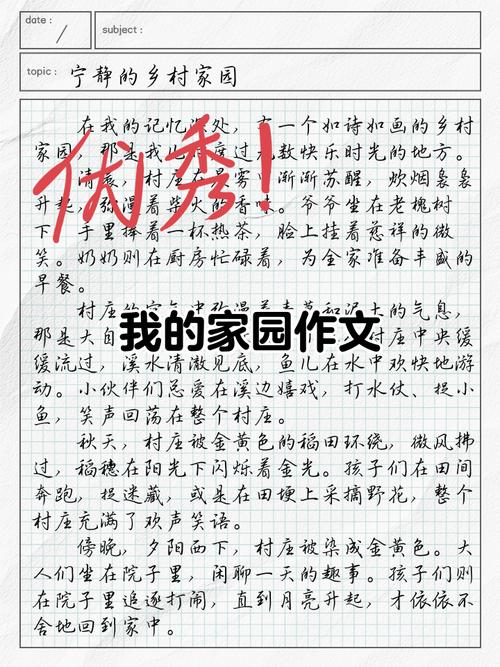 date :
subject :
topic : 宁静的乡村家园
优秀!
在我的记忆深处，有一个如诗如画的乡村
家园，那是我 度过无数快乐时光的地方。
清晨，村庄在晨雾中渐渐苏醒，炊烟袅袅
升起，弥漫着柴火的香味。爷爷坐在老槐树
下，手里捧着一杯热茶，脸上挂着慈祥的微
笑。奶奶则在厨房忙碌着，为全家准备丰盛的
早餐。
村庄的空气中弥漫着 和泥土的气息，
那是大自 村庄中央缓
我的家园作文
缓流过，溪水清澈见底，鱼儿在水中欢快地游
动。小伙伴们总爱在溪边嬉戏，打水仗、捉小
鱼，笑声回荡在整个村庄。
秋天，村庄被金黄色的稻田环绕，微风拂
过，稻穗在阳光下闪烁着金光。孩子们在田间
奔跑，捉迷藏，或是在田埂上采摘野花，整个
村庄充满了欢声笑语。
傍晚，夕阳西下，村庄被染成金黄色。大
人们坐在院子里，闲聊一天的趣事。孩子们则
在院子里追逐打闹，直到月亮升起，才依依不
舍地回到家中。